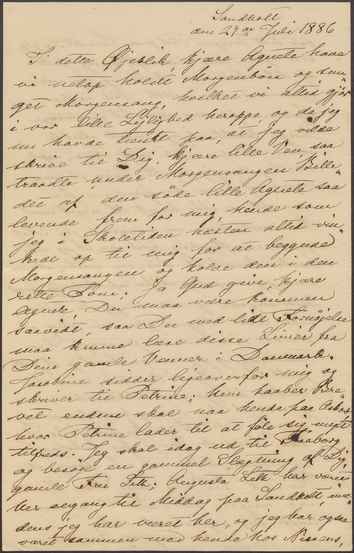 Sandholt
den 29de Juli 1886
I dette Øjeblik, kjære Agnete have
vi netop holdt Morgenbøn og sun-
get Morgensang, hvilket vi altid gjør
i vor lille Lejlighed heroppe, og da jeg
nu havde tænkt paa, at jeg vilde
skrive til Dig, kjære lille Ven, saa
traadte under Morgensangen Bille-
det af den søde lille Agnete saa
levende frem for mig, hende som
jeg i Skoletiden næsten altid vin-
kede op til mig for at begynde
Morgensangen og holde den i den
rette Tone; ja Gud give, kjære
Agnete, Du maa være kommen
saavidt, saa Du med lidt Fornøjelse
maa kunne læse disse Linier fra
Dine gamle Venner i Danmark.
sidder ligeoverfor mig og
skriver til Petrine; hun haaber Bre-
vet endnu skal naa hende paa
hvor Petrine lader til at føle sig meget
tilfreds. Jeg skal idag ud til Faaborg
og besøge en gammel Slægtning af
gamle Frk. Augusta har været
her engang til Middag paa Sandholt me-
dens jeg har været her, og jeg har ogsaa
været sammen med hende hos